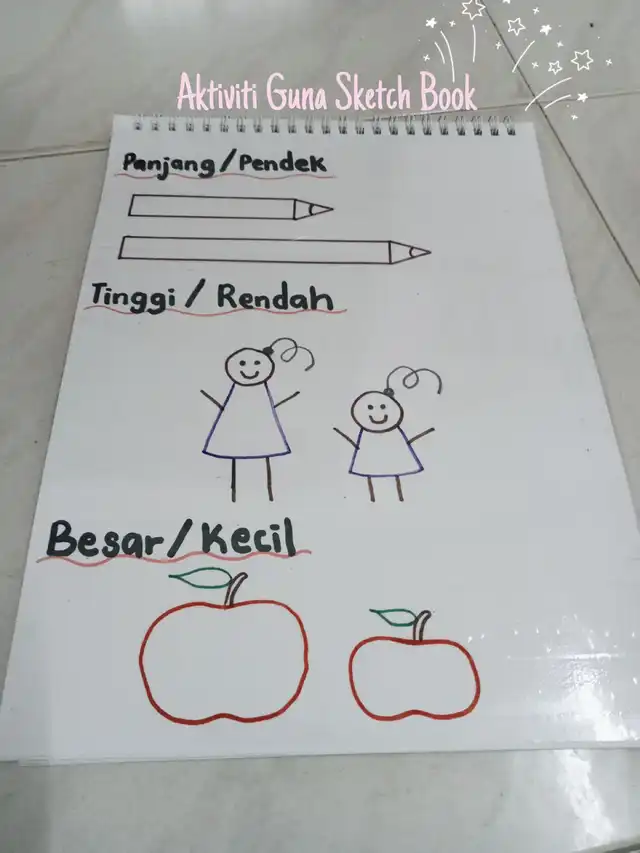 Aktiviti Guna Sketch Book
Panjang/Pendek
Tinggi / Rendah
Besar/Kecil